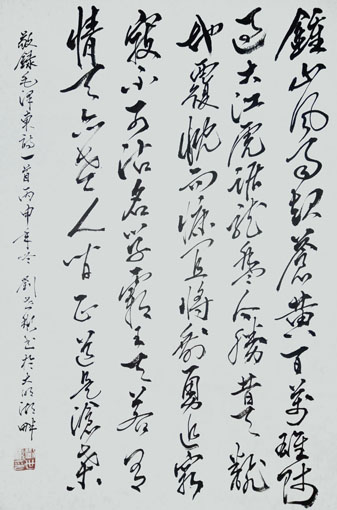 鍾山風雨起蒼黃百萬雄師
過大江虎踞龍盤今勝昔天翻
地覆慨而慷宜將剩勇追窮
寇不可沽名學霸王天若有
情天亦老人間正道是滄桑
敬錄毛澤東詩一首丙申年冬劉書於大明湖畔